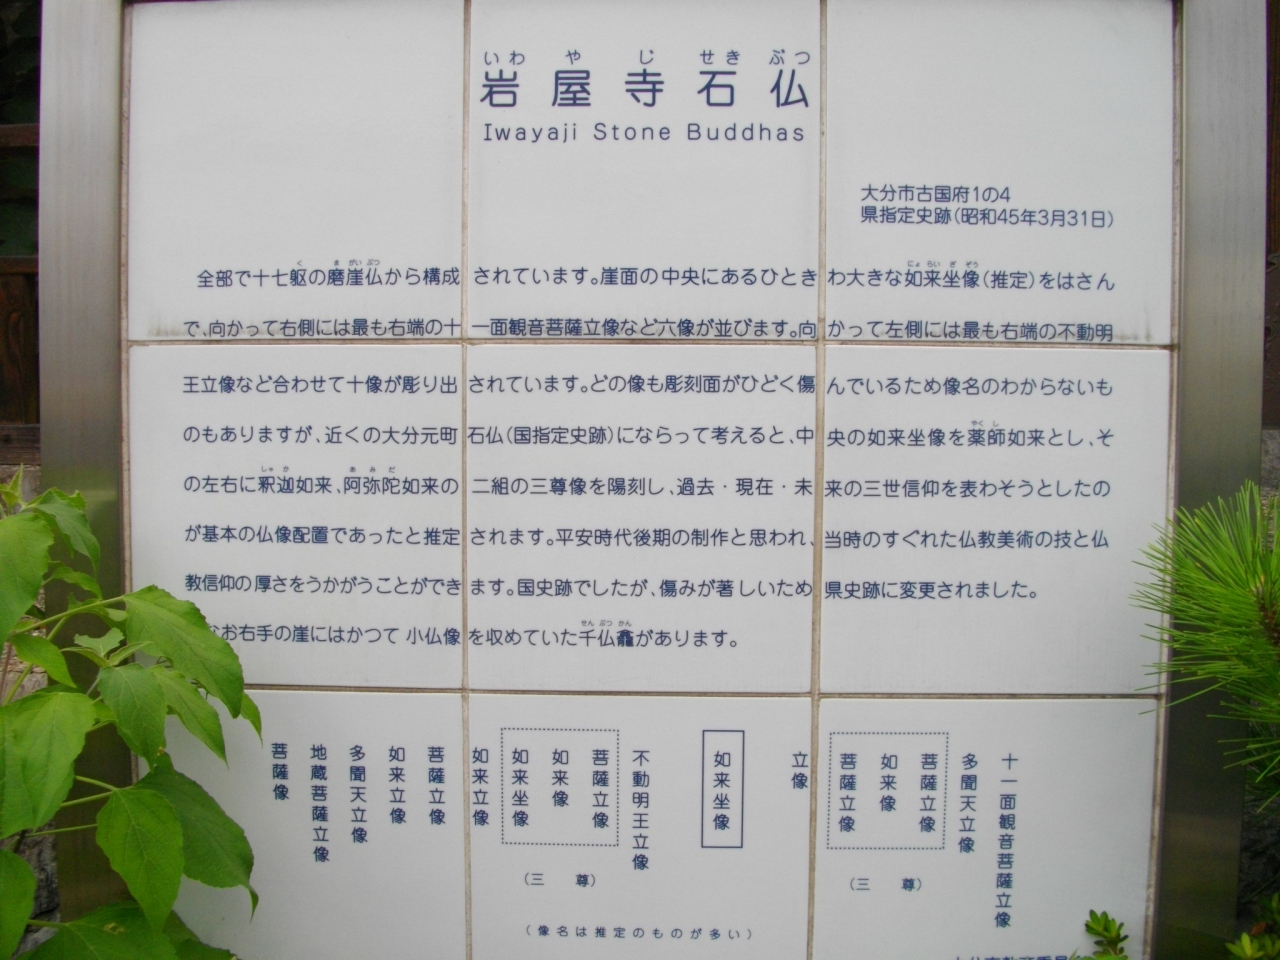 いわ や じ せき ぶつ
岩屋寺石仏
Iwayaji Stone Buddhas
大分市古国府1の4
県指定史跡(昭和45年3月31日)
く ま がい ぶつ にょ らい ざ ぞう
全部で十七躯の磨崖仏から構成されています。崖面の中央にあるひときわ大きな如来坐像(推定)をはさん
で、向かって右側には最も右端の十一面観音菩薩立像など六像が並びます。向かって左側には最も右端の不動明
王立像など合わせて十像が彫り出されています。どの像も彫刻面がひどく傷んでいるため像名のわからないも
やく し
のもありますが、近くの大分元町石仏(国指定史跡)にならって考えると、中央の如来坐像を薬師如来とし、そ
しゃ か あ み だ
の左右に釈迦如来、阿弥陀如来の二組の三尊像を陽刻し、過去・現在・未来の三世信仰を表わそうとしたの
が基本の仏像配置であったと推定されます。平安時代後期の制作と思われ、当時のすぐれた仏教美術の技と仏
教信仰の厚さをうかがうことができます。国史跡でしたが、傷みが著しいため県史跡に変更されました。
せん ぶつ がん
なお右手の崖にはかつて小仏像を収めていた千仏龕があります。
十一面観音菩薩立像
多聞天立像
菩薩立像
如来像
菩薩立像
(三 尊)
立像
如来坐像
不動明王立像
菩薩立像
如来像
如来坐像
(三 尊)
如来立像
菩薩立像
如来立像
多聞天立像
地蔵菩薩立像
菩薩像
(像名は推定のものが多い)